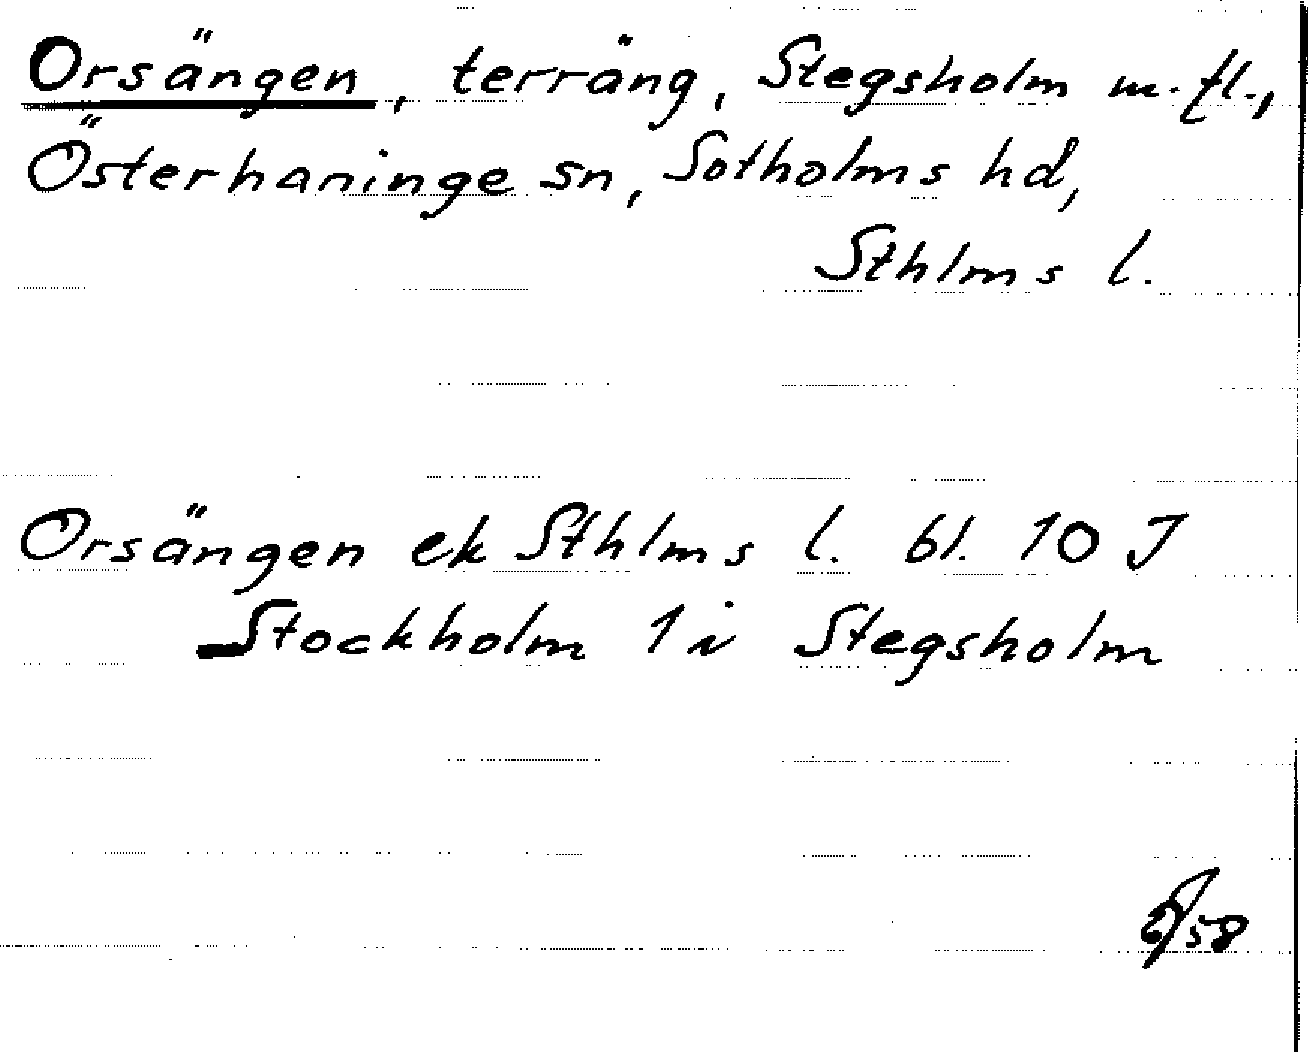 Orsängen, terräng, Stegsholm m. fl.,
Österhaninge sn, Sotholms hd,
Sthlms l.
Orsängen ek Sthlms l. bl. 10 J
Stockholm 1 i Stegsholm
58